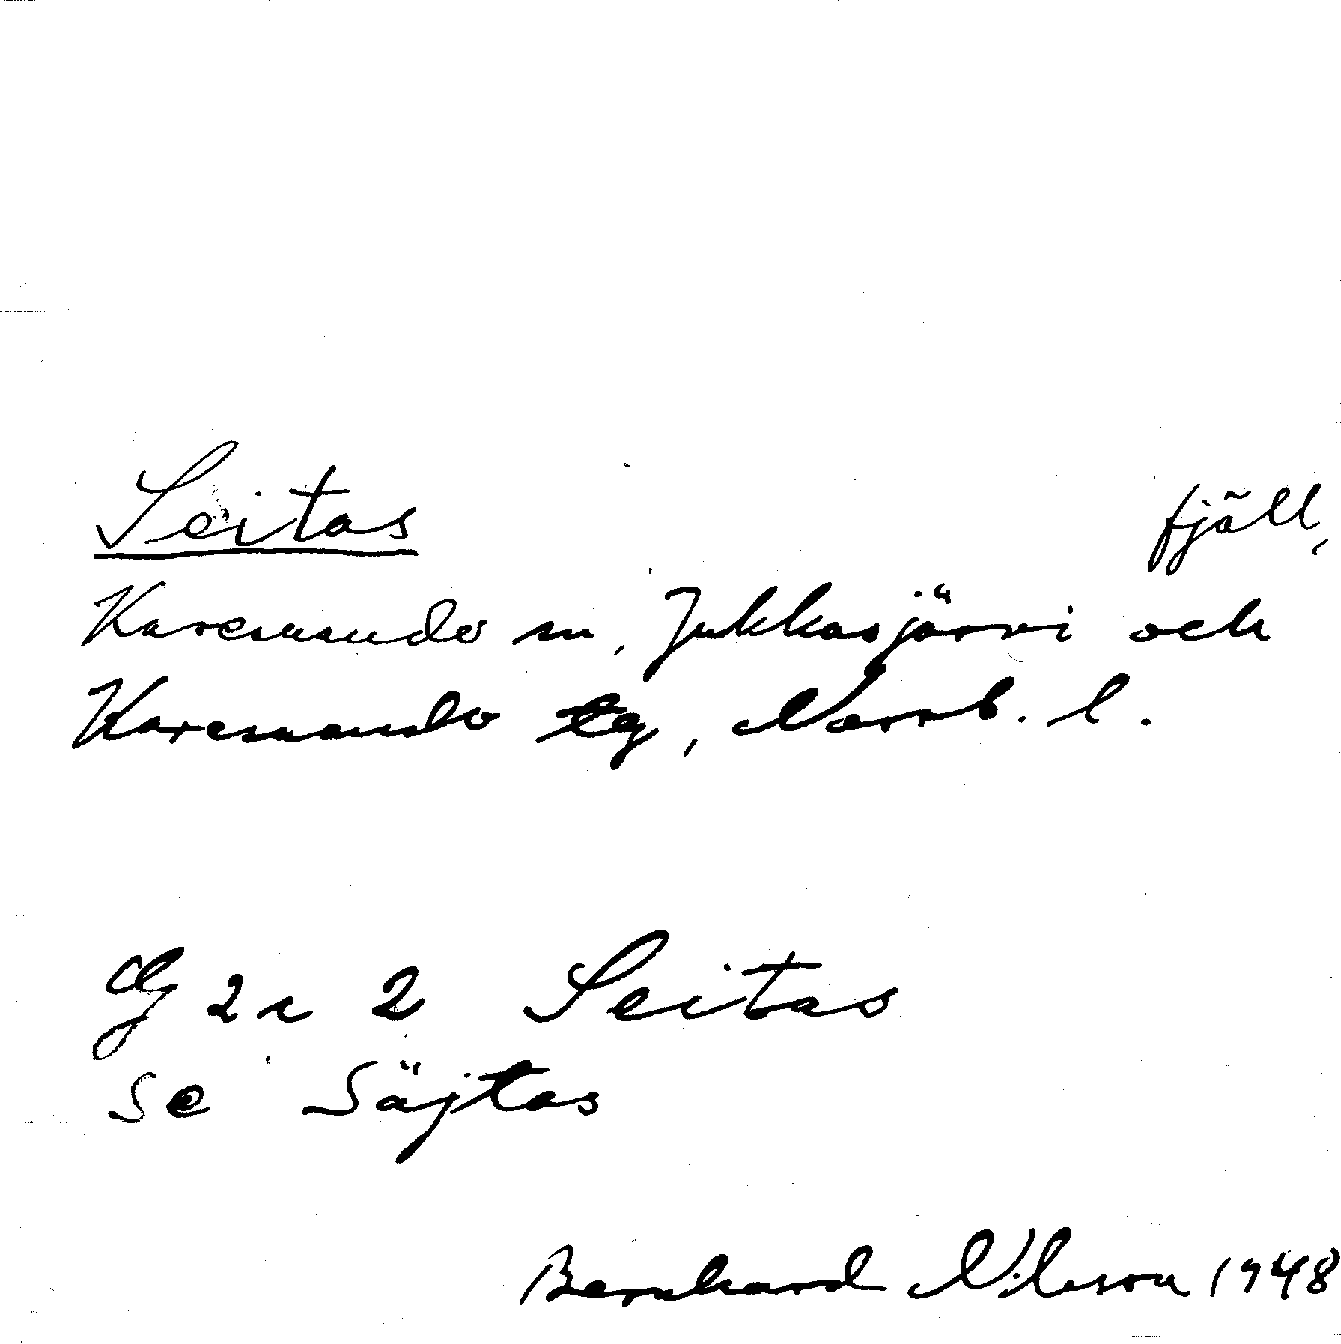 Seitas fjäll,
Karesuando sn, Jukkasjärvi och
Karesuando tg, Norrb. l.
Seitas
se Säjtas
Bernhard Nilsson 1948